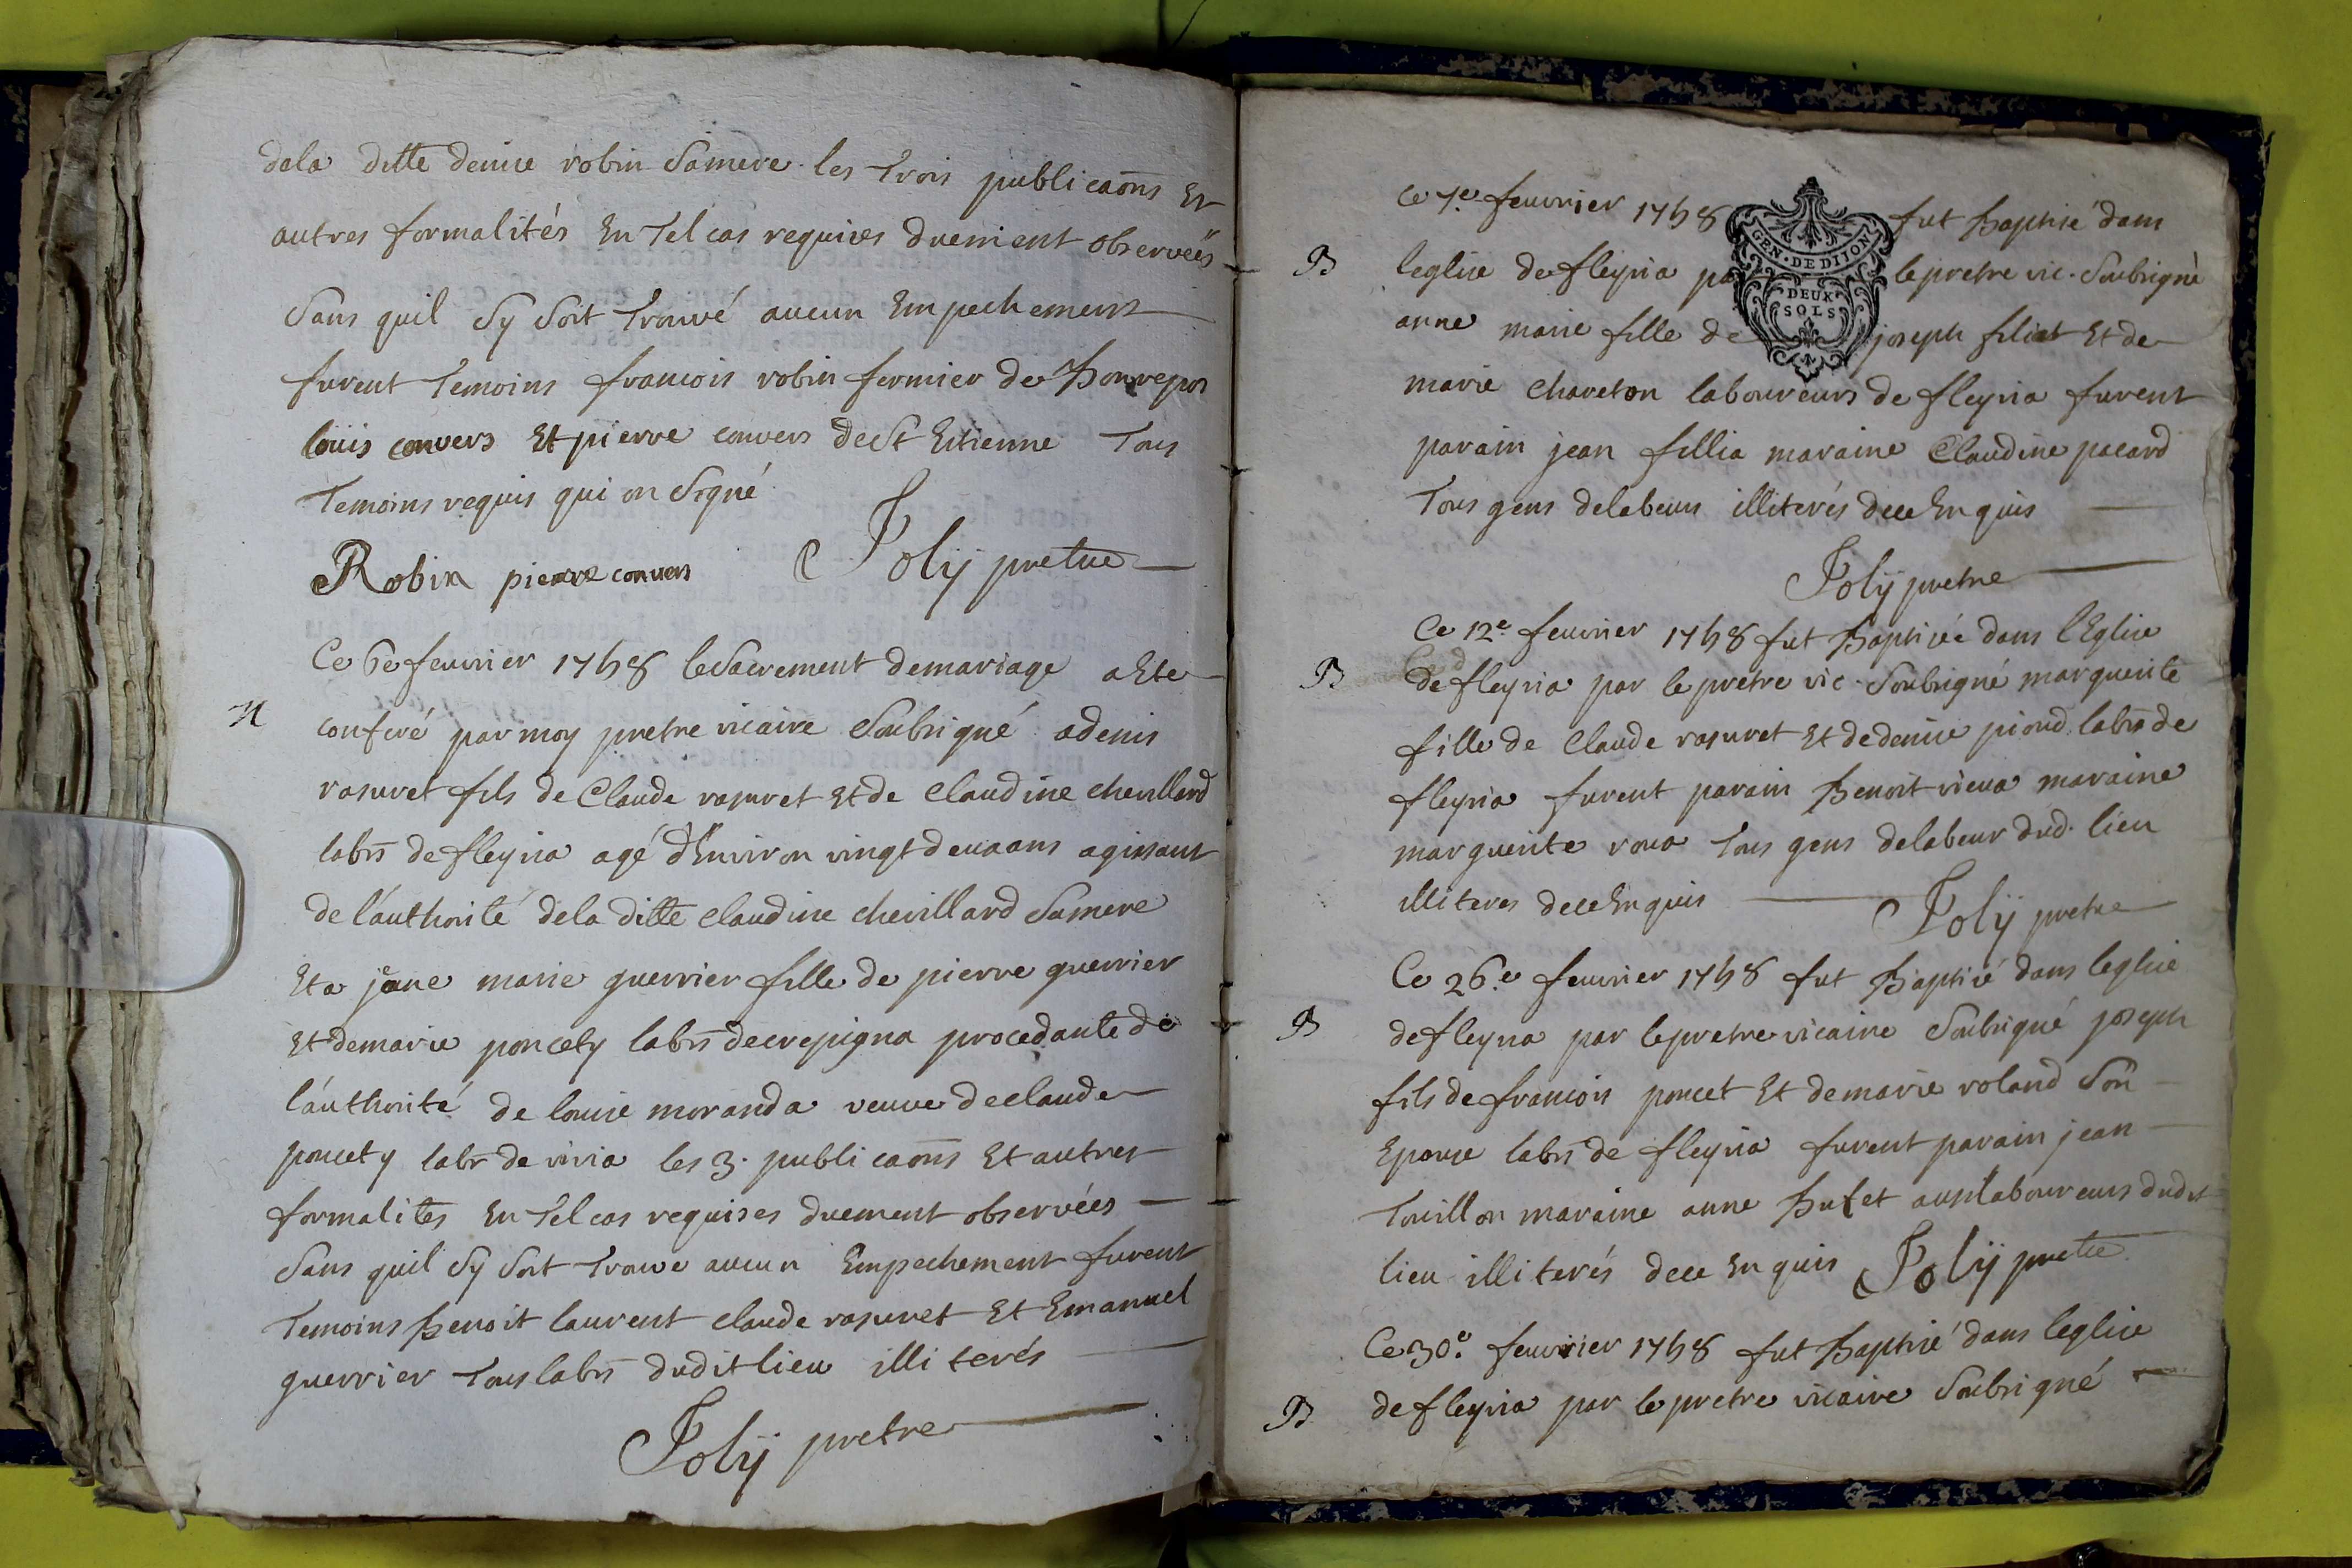 dela ditte denise robin Samere les trois publicaõns Et
autres formalités En tel cas requises duement observeés
Sans quil Sy Soit trouvé aucun Empechement
furent temoins francois robin fermier de Bonrepos
loüis convers Et pierre convers de St Estienne tous
temoins requis qui on Signé
Robin pierre convers Joly pretre
Ce 6e feuvrier 1758 le Sacrement de mariage a Ete
M conferé par moy pretre vicaire Soubsigné a denis
rasuret fils de Claude rasuret Et de Claudine chevillard
labrs de fleyria agé d'Environ vingt deux ans agissant
de l'authorité de la ditte claudine chevillard Samere
Et a jeane marie guerrier fille de pierre guerrier
Et de marie poncety labrs de crepigna procedante de
l'authorité de louise moranda veuve de claude
poncety labr de viria les 3. publicaõns Et autres
formalites En tel cas requises duement observées
Sans quil Sy Soit trouve aucun Empechement furent
temoins Benoit laurent claude rasuret Et Emanuel
guerrier tous labrs dudit lieu illiterés
Joly pretre
Ce 7.e feuvrier 1758 fut Baptisé dans
GEN. DE DIJON
B leglise de fleyria par le pretre vic. Soubsigné
DEUX
SOLS
anne marie fille de joseph filiat Et de
marie chareton laboureurs de fleyria furent
parain jean fillia maraine Claudine pacard
tous gens de labeur illiterés de ce Enquis
Joly pretre
Ce 12e feuvrier 1758 fut Baptisée dans l'Eglise
B de fleyria par le pretre vic. Soubsigné marguerite
fille de Claude rasuret Et de denise piond labrs de
fleyria furent parain Benoit vieux maraine
marguerite roux tous gens de labeur dud. lieu
illiteres de ce Enquis Joly pretre
Ce 26.e feuvrier 1758 fut Baptisé dans leglise
B de fleyria par le pretre vicaire Soubsigné joseph
fils de francois poncet Et de marie roland Son
Epouse labrs de fleyria furent parain jean
touillon maraine anne Bufet aussi laboureurs dudit
lieu illiterés de ce Enquis Joly pretre
Ce 30.e feuvrier 1758 fut Baptisé dans leglise
B de fleyria par le pretre vicaire Soubsigné